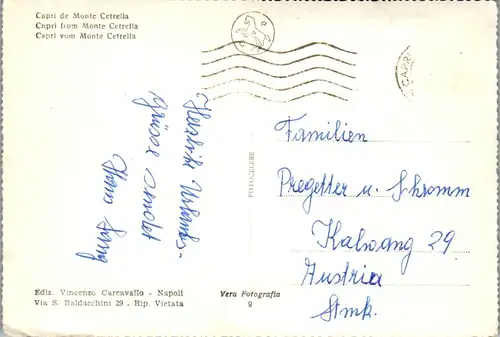 Capri de Monte Cetrella
Capri from Monte Cetrella
Capri vom Monte Cetrella
CAPRI
Herzliche Urlaubs-
grüsse sendet
FOTOCELERE
Familien
Pregetter u. Schramm
Kalwang 29
Austria
Stmk.
Ediz. Vincenzo Carcavallo - Napoli
Via S. Baldacchini 29 - Rip. Vietata
Vera Fotografia
9